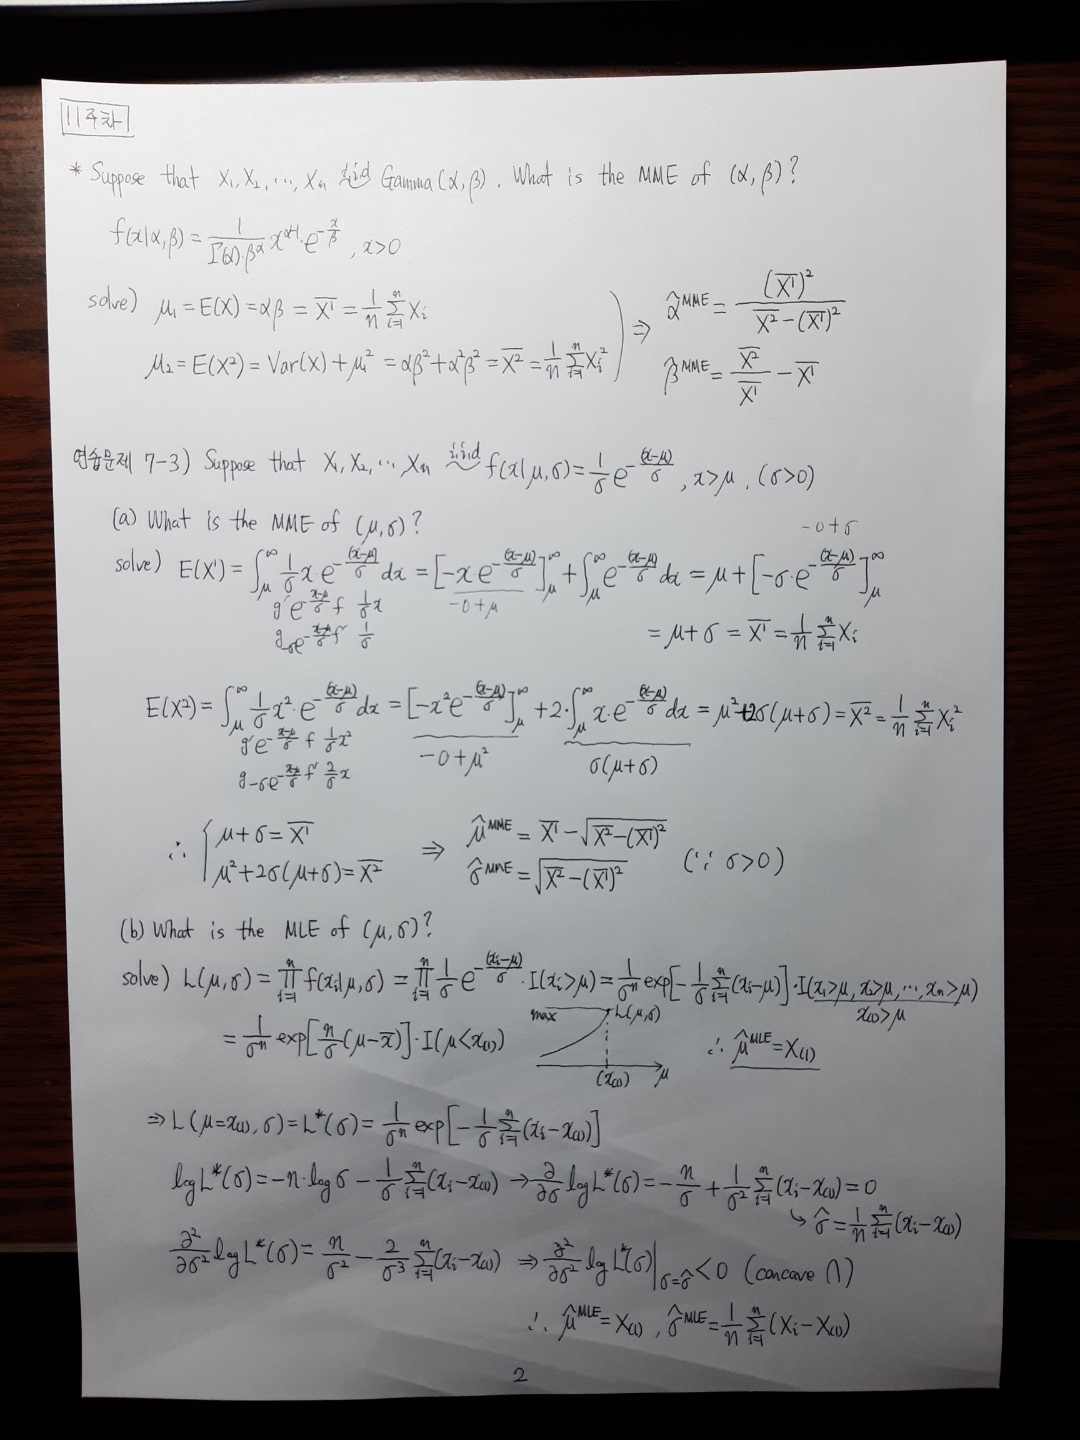 11주차
* Suppose that X₁, X₂, ⋯, Xₙ iid Gamma(α, β). What is the MME of (α, β)?
f(x|α,β) = 1/(Γ(α)·β^α) x^(α-1)·e^(-x/β), x>0
solve) μ₁ = E(X) = αβ = X̄¹ = 1/n Σ_{i=1}^n Xᵢ
μ₂ = E(X²) = Var(X) + μ₁² = αβ² + α²β² = X̄² = 1/n Σ_{i=1}^n Xᵢ²
⇒ α̂^MME = (X̄¹)² / (X̄² − (X̄¹)²)
β̂^MME = X̄²/X̄¹ − X̄¹
연습문제 7-3) Suppose that X₁, X₂, ⋯, Xₙ iid f(x|μ,σ) = 1/σ e^(-(x-μ)/σ), x>μ, (σ>0)
(a) What is the MME of (μ,σ)?
-0+σ
solve) E(X¹) = ∫_μ^∞ 1/σ x·e^(-(x-μ)/σ) dx = [-x·e^(-(x-μ)/σ)]_μ^∞ + ∫_μ^∞ e^(-(x-μ)/σ) dx = μ + [-σ·e^(-(x-μ)/σ)]_μ^∞
-0+μ
g' e^(-(x-μ)/σ) f 1/σ x
g -σe^(-(x-μ)/σ) f' 1/σ
= μ+σ = X̄¹ = 1/n Σ_{i=1}^n Xᵢ
E(X²) = ∫_μ^∞ 1/σ x²·e^(-(x-μ)/σ) dx = [-x²e^(-(x-μ)/σ)]_μ^∞ + 2·∫_μ^∞ x·e^(-(x-μ)/σ) dx = μ²+2σ(μ+σ) = X̄² = 1/n Σ_{i=1}^n Xᵢ²
g' e^(-(x-μ)/σ) f 1/σ x²
-0+μ² σ(μ+σ)
g -σe^(-(x-μ)/σ) f' 2/σ x
∴ { μ+σ = X̄¹ ⇒ μ̂^MME = X̄¹ − √(X̄² − (X̄¹)²)
μ²+2σ(μ+σ) = X̄² σ̂^MME = √(X̄² − (X̄¹)²) (∵ σ>0)
(b) What is the MLE of (μ,σ)?
solve) L(μ,σ) = ∏_{i=1}^n f(xᵢ|μ,σ) = ∏_{i=1}^n 1/σ e^(-(xᵢ-μ)/σ)·I(xᵢ>μ) = 1/σⁿ exp[-1/σ Σ_{i=1}^n (xᵢ-μ)]·I(x₁>μ, x₂>μ, ⋯, xₙ>μ)
x₍₁₎>μ
= 1/σⁿ exp[n/σ (μ-x̄)]·I(μ<x₍₁₎)
max L(μ,σ)
(x₍₁₎) μ
∴ μ̂^MLE = X₍₁₎
⇒ L(μ=x₍₁₎, σ) = L*(σ) = 1/σⁿ exp[-1/σ Σ_{i=1}^n (xᵢ-x₍₁₎)]
log L*(σ) = -n·log σ - 1/σ Σ_{i=1}^n (xᵢ-x₍₁₎) → ∂/∂σ log L*(σ) = -n/σ + 1/σ² Σ_{i=1}^n (xᵢ-x₍₁₎) = 0
↳ σ̂ = 1/n Σ_{i=1}^n (xᵢ-x₍₁₎)
∂²/∂σ² log L*(σ) = n/σ² - 2/σ³ Σ_{i=1}^n (xᵢ-x₍₁₎) ⇒ ∂²/∂σ² log L*(σ)|_{σ=σ̂} < 0 (concave ∩)
∴ μ̂^MLE = X₍₁₎, σ̂^MLE = 1/n Σ_{i=1}^n (Xᵢ-X₍₁₎)
2